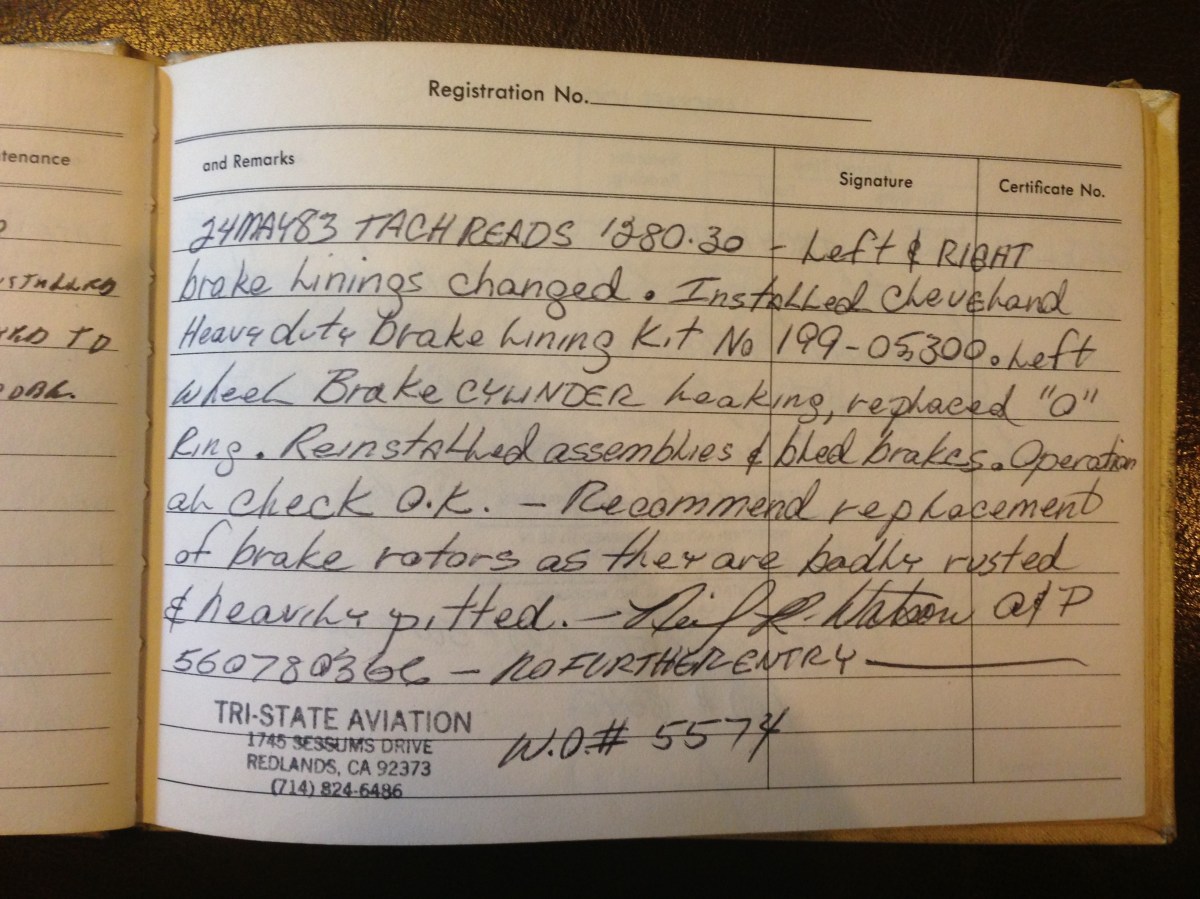 Registration No.
tenance
and Remarks
Signature
Certificate No.
24MAY83 TACH READS 1280.30 - Left & RIGHT
brake Linings changed. Installed Cleveland
Heavy duty Brake Lining Kit No 199-05300. Left
wheel Brake CYLINDER Leaking, replaced "O"
Ring. Reinstalled assemblies & bled brakes. Operation
al check O.K. - Recommend replacement
of brake rotors as they are badly rusted
& heavily pitted. - R. Watson A&P
- NO FURTHER ENTRY
TRI-STATE AVIATION
1745 SESSUMS DRIVE
REDLANDS, CA 92373
(714) 824-6486
W.O.# 5574